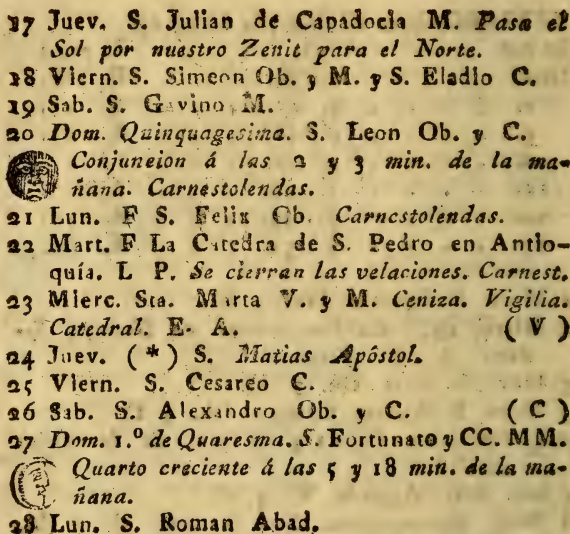 17 Juev. S. Julian de Capadocia M. Pasa el
Sol por nuestro Zenit para el Norte.
18 Viern. S. Simeon Ob. y M. y S. Eladio C.
19 Sab. S. Gavino M.
20 Dom. Quinquagesima. S. Leon Ob. y C.
Conjuncion á las 2 y 3 min. de la ma-
ñana. Carnestolendas.
21 Lun. F S. Felix Ob. Carnestolendas.
22 Mart. F La Catedra de S. Pedro en Antio-
quía. L P. Se cierran las velaciones. Carnest.
23 Mierc. Sta. Marta V. y M. Ceniza. Vigilia.
Catedral. E. A. (V)
24 Juev. (*) S. Matias Apóstol.
25 Viern. S. Cesareo C.
26 Sab. S. Alexandro Ob. y C. (C)
27 Dom. 1.º de Quaresma. S. Fortunato y CC. MM.
Quarto creciente á las 5 y 18 min. de la ma-
ñana.
28 Lun. S. Roman Abad.